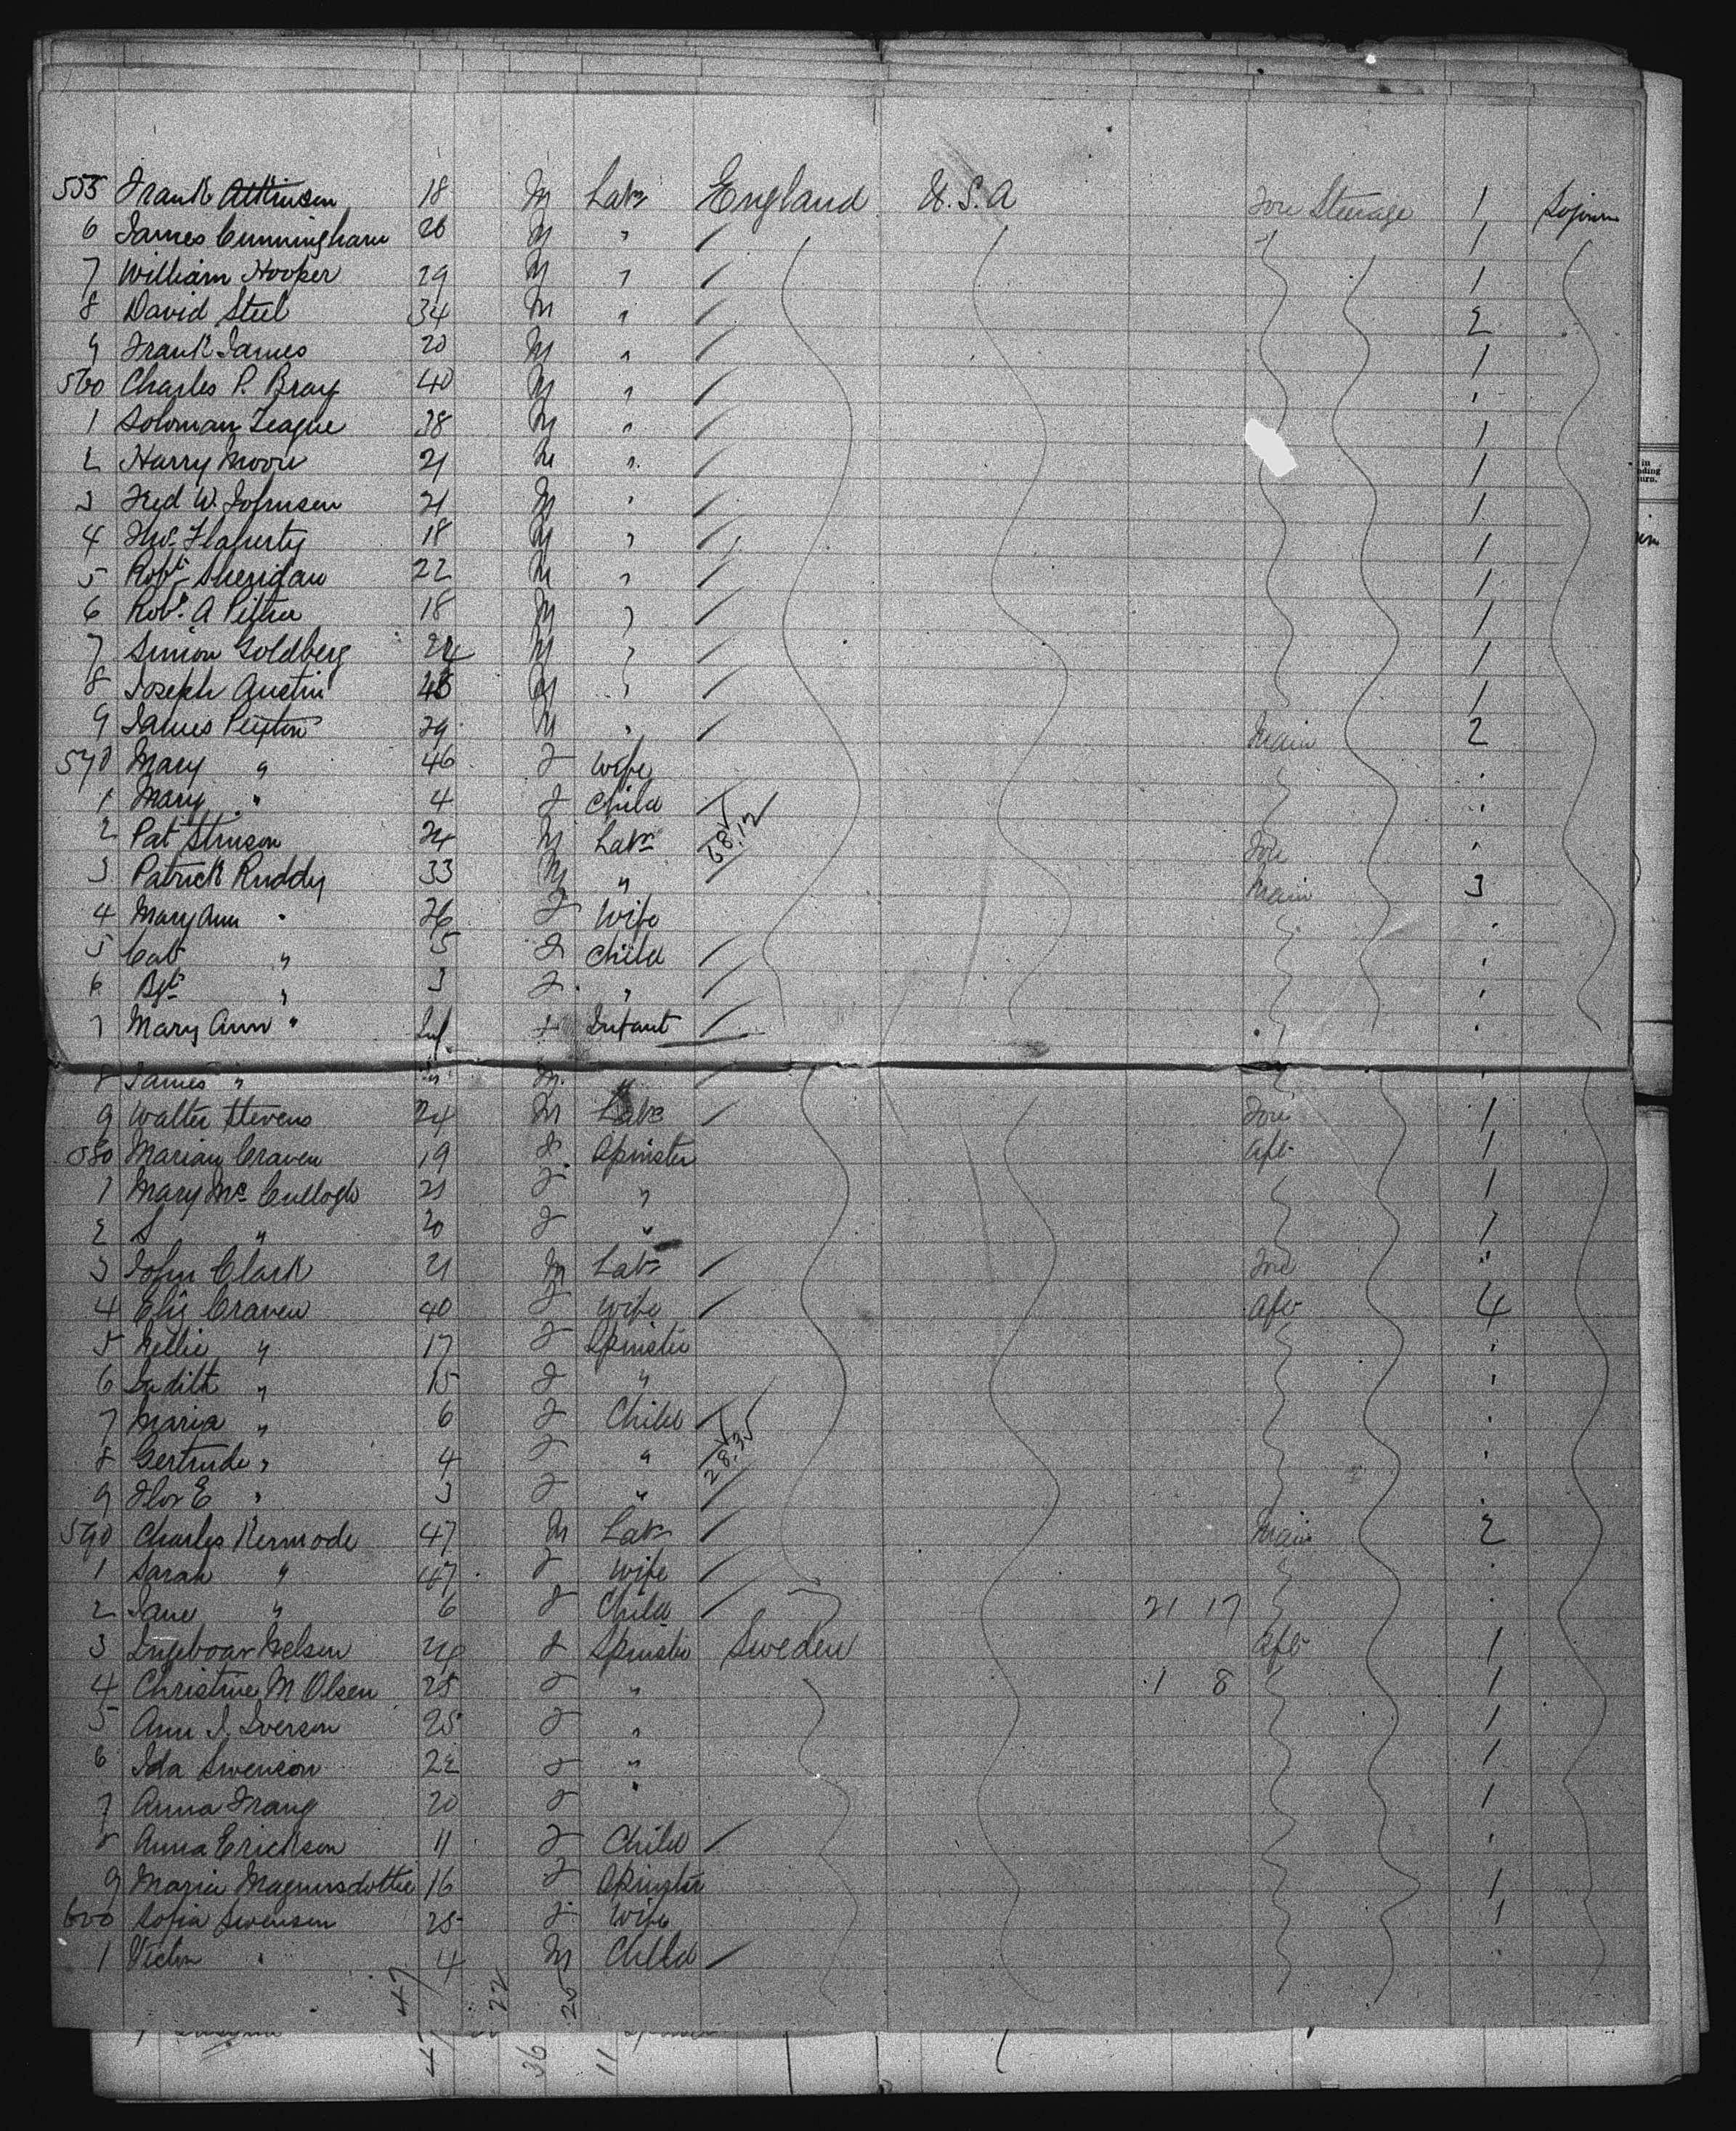 555 Frank Atkinson 18 M Labr England U.S.A Fore Steerage 1 Sojourn
6 James Cunningham 26 M " 1
7 William Hooper 29 M " 1
8 David Steel 34 M " 2
9 Frank James 20 M " 1
560 Charles P. Bray 40 M "
1 Soloman Teague 38 M " 1
2 Harry Moore 21 M " 1
3 Fred W. Johnson 21 M " 1
4 Thos Flaherty 18 M " 1
5 Robt Sheridan 22 M " 1
6 Robt A 18 M " 1
7 Simon Goldberg M " 1
8 Joseph Austin M " 1
9 James M " Main 2
570 Mary " 46 F Wife
1 Mary " 4 F Child
2 Pat Stinson 24 M Labr 68.12 Fore
3 Patrick Ruddy 33 M " Main 3
4 Mary Ann " 26 F Wife
5 Cat " 5 F Child
6 Bgt " 3 F "
7 Mary Ann " Inf. F Infant
8 James " M "
9 Walter Stevens 24 M Labr Fore 1
580 Marian Craven 19 F Spinster Aft 1
1 Mary McCullogh 21 F " 1
2 S " 20 F " 1
3 John Clark 21 M Labr Fore
4 Eliz Craven 40 F Wife Aft 4
5 Nellie " 17 F Spinster
6 Judith " 15 F "
7 Maria " 6 F Child
8 Gertrude " 4 F " 28.3
9 Flor E " 3 F "
590 Charles Kermode 47 M Labr Main 2
1 Sarah " 47 F Wife
2 Jane " 6 F Child 21 17
3 Ingeboar Nelsen F Spinster Sweden Aft 1
4 Christine M Olsen 25 F " 1 8 1
5 Ann J. Iverson 25 F " 1
6 Ida Swenson 22 F " 1
7 Anna Frang 20 F " 1
8 Anna Erickson 11 F Child
9 Maria Magnusdotter 16 F Spinster 1
600 Sofia Swensen 25 F Wife 1
1 Victor " 4 M Child
47 22 25
47 36 11